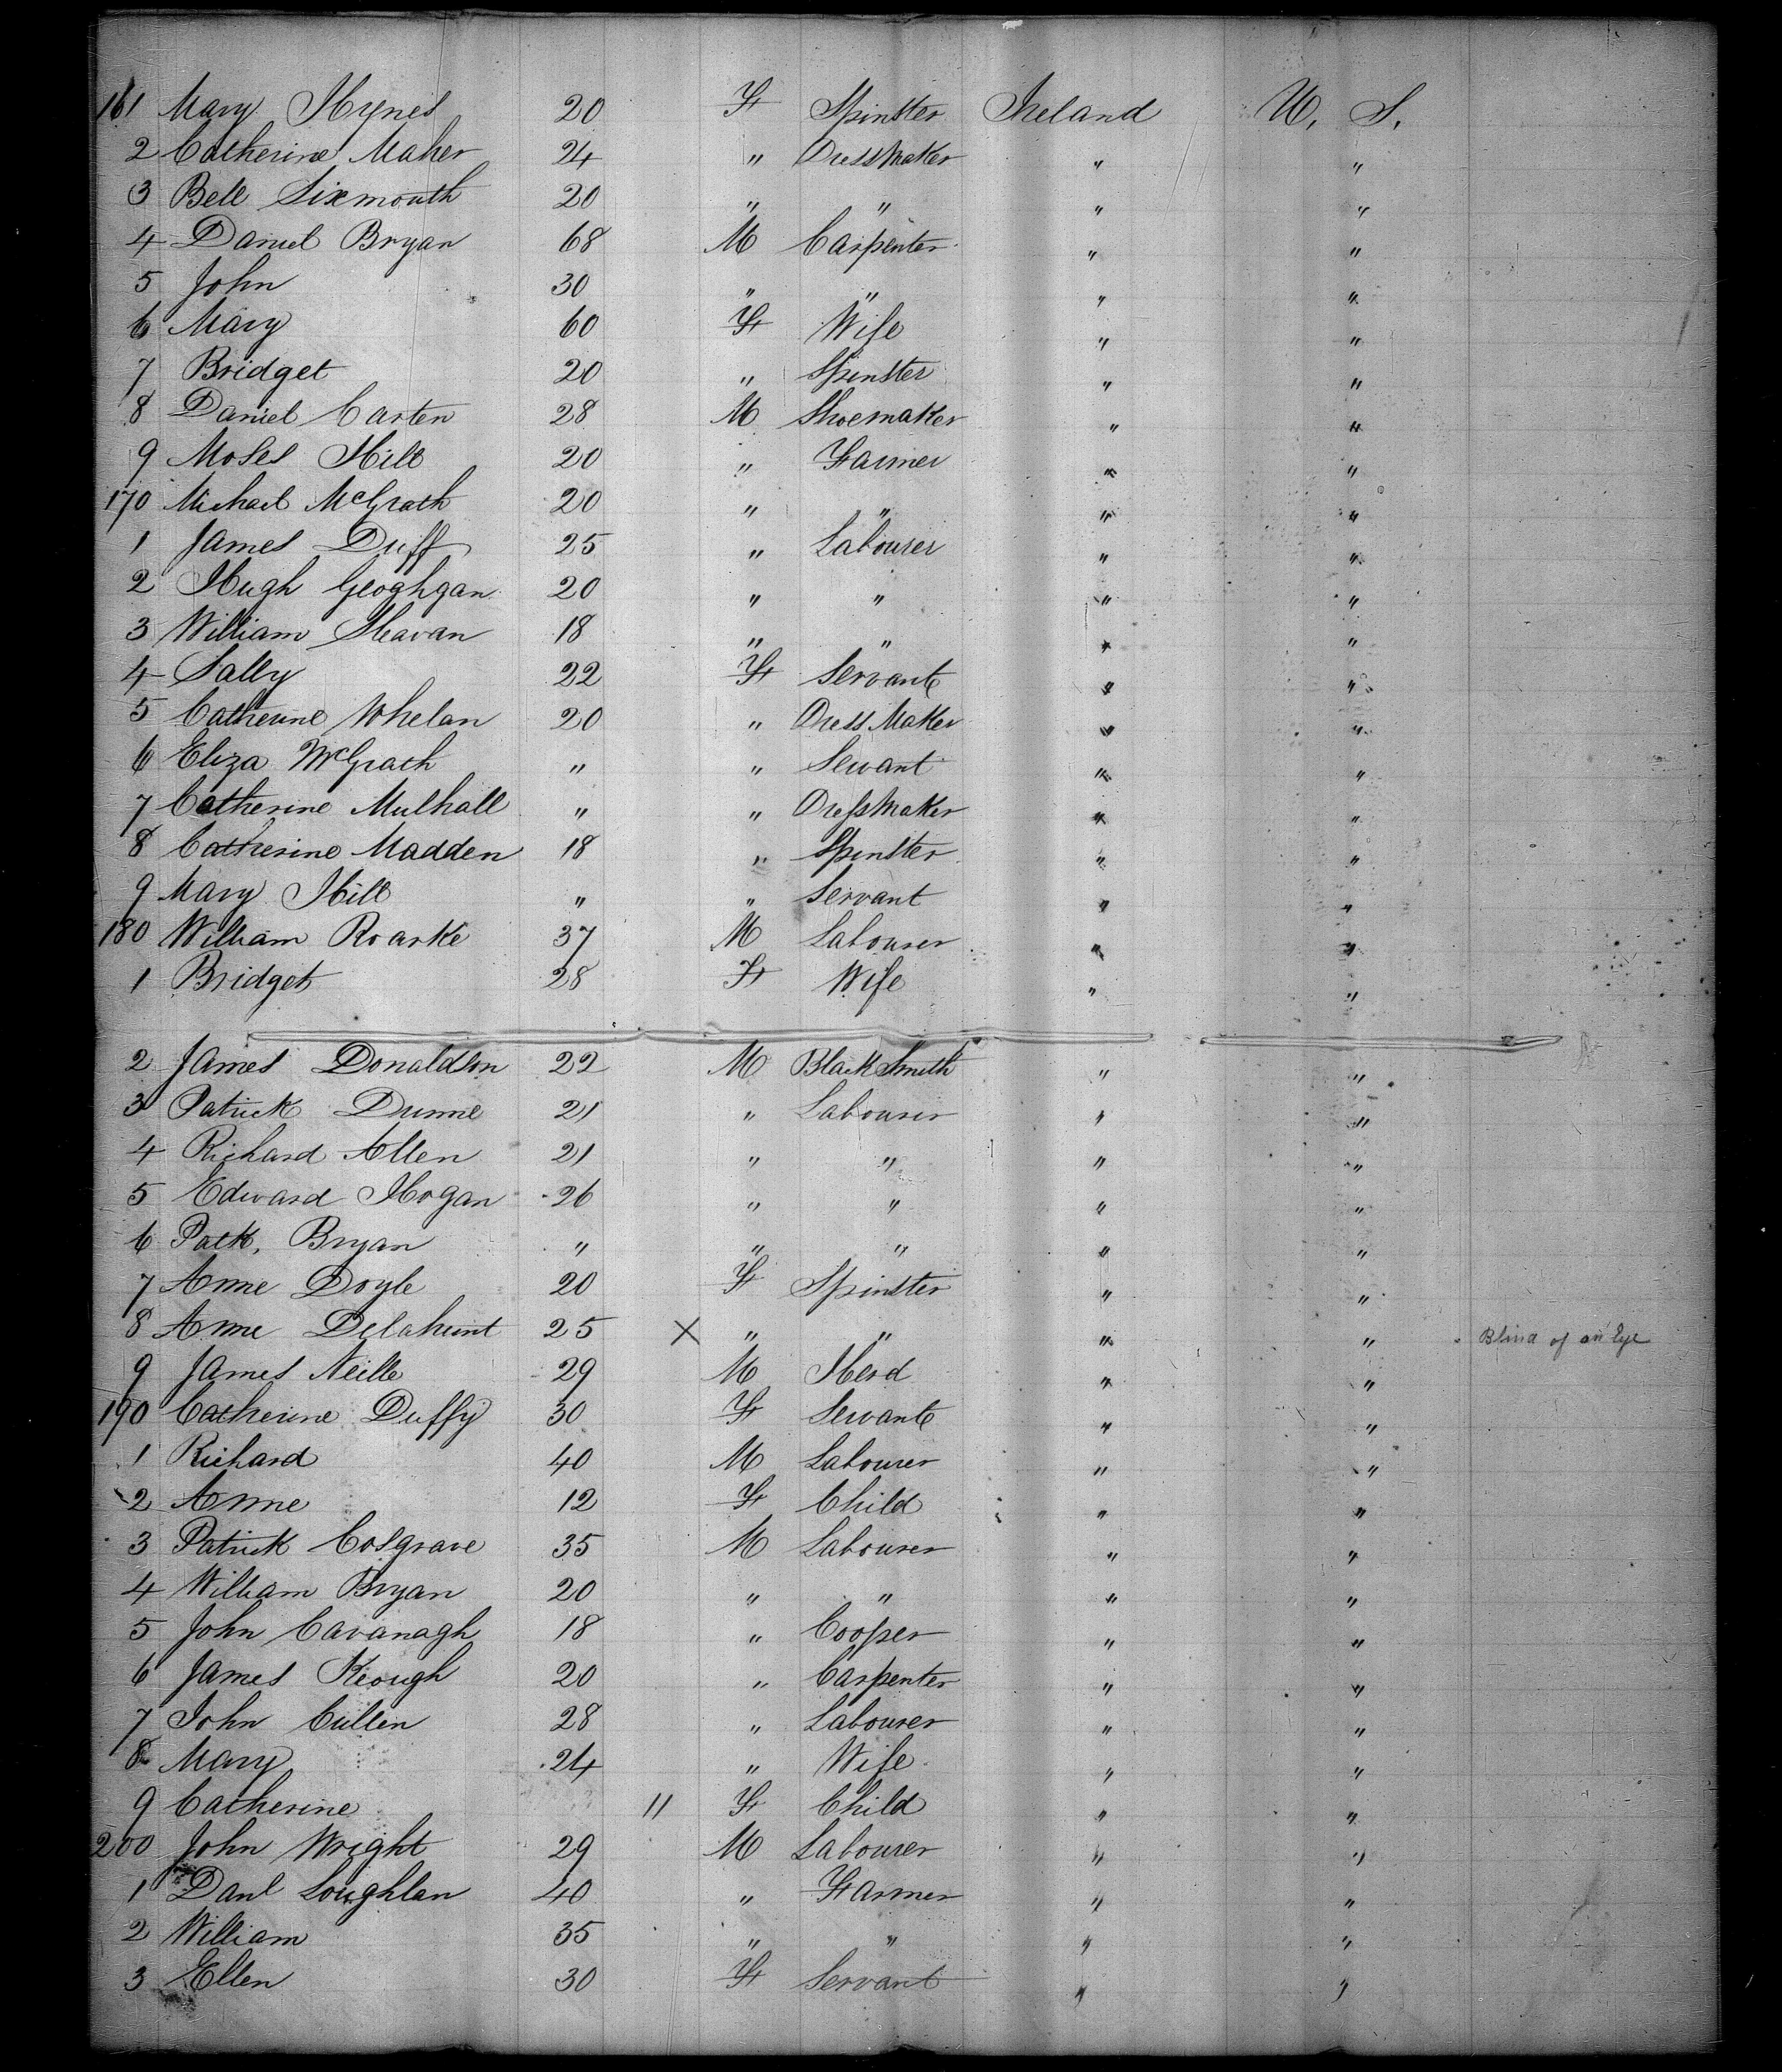 161 Mary Hynes 20 F Spinster Ireland U. S.
2 Catherine Maher 24 " Dressmaker " "
3 Bell Sixmouth 20 " " " "
4 Daniel Bryan 68 M Carpenter " "
5 John 30 " " " "
6 Mary 60 F Wife " "
7 Bridget 20 " Spinster " "
8 Daniel Carten 28 M Shoemaker " "
9 Moses Hill 20 " Farmer " "
170 Michael McGrath 20 " " " "
1 James Duff 25 " Labourer " "
2 Hugh Geoghgan 20 " " " "
3 William Heavan 18 " " " "
4 Sally 22 F Servant " "
5 Catherine Whelan 20 " Dress Maker " "
6 Eliza McGrath " " Servant " "
7 Catherine Mulhall " " Dressmaker " "
8 Catherine Madden 18 " Spinster " "
9 Mary Hill " " Servant " "
180 William Roarke 37 M Labourer " "
1 Bridget 28 F Wife " "
2 James Donaldson 22 M Black Smith " "
3 Patrick Dunne 21 " Labourer " "
4 Richard Allen 21 " " " "
5 Edward Hogan 26 " " " "
6 Patk. Bryan " " " " "
7 Anne Doyle 20 F Spinster " "
8 Anne Delahunt 25 X " " " " Blind of an Eye
9 James Neille 29 M Herd " "
190 Catherine Duffy 30 F Servant " "
1 Richard 40 M Labourer " "
2 Anne 12 F Child " "
3 Patrick Cosgrave 35 M Labourer " "
4 William Bryan 20 " " " "
5 John Cavanagh 18 " Cooper " "
6 James Keough 20 " Carpenter " "
7 John Cullen 28 " Labourer " "
8 Mary 24 " Wife " "
9 Catherine 11 F Child " "
200 John Wright 29 M Labourer " "
1 Danl Loughlan 40 " Farmer " "
2 William 35 " " " "
3 Ellen 30 F Servant " "